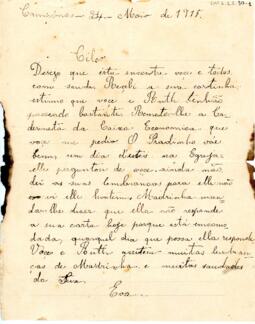 Campinas 24 Maio de 1915.
Cilo.
Desejo que esta encontre voce e todos
com saude. Recebi a sua cartinha
estimo que voce e Ruth tenhão
passado bastante. Remeto-lhe a Ca-
derneta da Caixa Economica que
voce me pedio. O Pradinho vae
bem, um dia destes na Egreja
elle perguntou de voce, ainda não
dei as suas lembranças para elle não
vi elle hontem. Madrinha man-
da-lhe dizer que ella não responde
a sua carta hoje porque está encomo-
dada, qualquer dia que possa ella responde.
Voce e Ruth aceitem muitas lembran-
ças de Madrinha e muitas saudades
da Sua.
Eva.